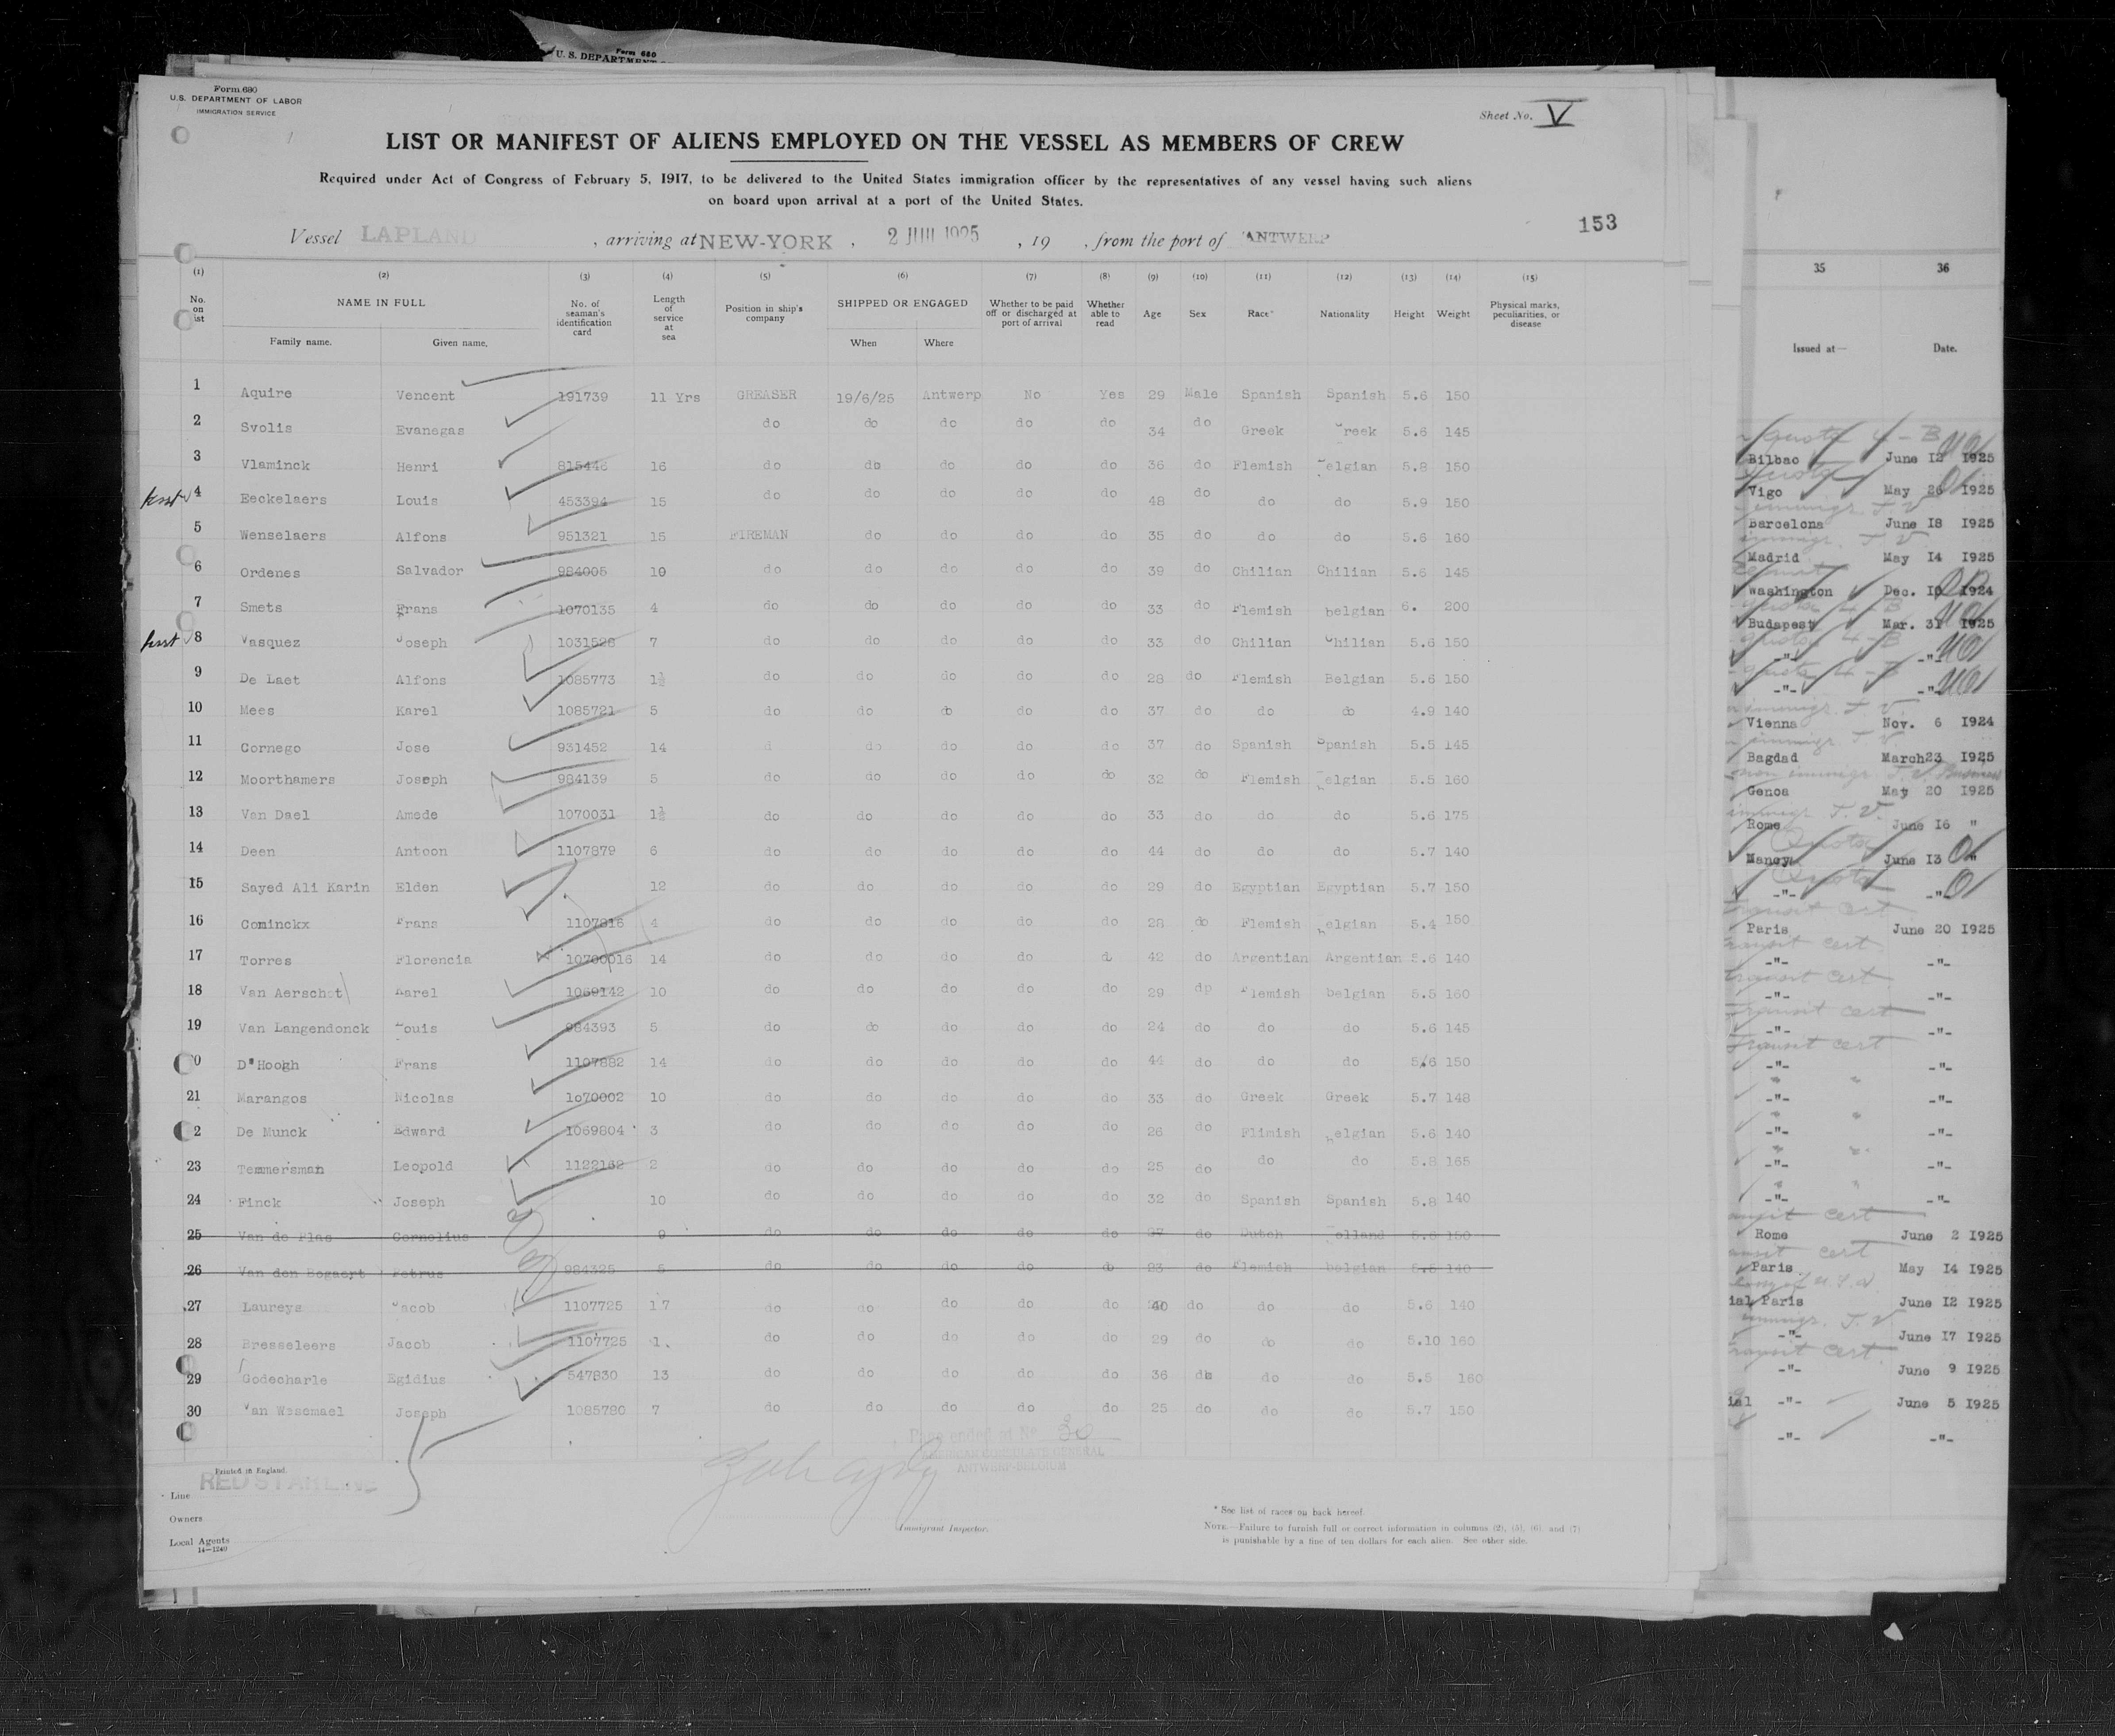 Form 680
U. S. DEPARTMENT
Form 680
U.S. DEPARTMENT OF LABOR
IMMIGRATION SERVICE
Sheet No. V
LIST OR MANIFEST OF ALIENS EMPLOYED ON THE VESSEL AS MEMBERS OF CREW
Required under Act of Congress of February 5, 1917, to be delivered to the United States immigration officer by the representatives of any vessel having such aliens
on board upon arrival at a port of the United States.
153
Vessel LAPLAND , arriving at NEW-YORK , 2 1925 , 19 , from the port of ANTWERP
(1) (2) (3) (4) (5) (6) (7) (8) (9) (10) (11) (12) (13) (14) (15)
No. on list NAME IN FULL Family name. Given name. No. of seaman's identification card Length of service at sea Position in ship's company SHIPPED OR ENGAGED When Where Whether to be paid off or discharged at port of arrival Whether able to read Age Sex Race* Nationality Height Weight Physical marks, peculiarities, or disease
1 Aquire Vencent 191739 11 Yrs GREASER 19/6/25 Antwerp No Yes 29 Male Spanish Spanish 5.6 150
2 Svolis Evanegas do do do do do 34 do Greek Greek 5.6 145
3 Vlaminck Henri 815446 16 do do do do do 36 do Flemish Belgian 5.8 150
4 Eeckelaers Louis 453394 15 do do do do do 48 do do do 5.9 150
5 Wenselaers Alfons 951321 15 FIREMAN do do do do 35 do do do 5.6 160
6 Ordenes Salvador 984005 10 do do do do do 39 do Chilian Chilian 5.6 145
7 Smets Frans 1070135 4 do do do do do 33 do Flemish belgian 6. 200
8 Vasquez Joseph 1031528 7 do do do do do 33 do Chilian Chilian 5.6 150
9 De Laet Alfons 1085773 1½ do do do do do 28 do Flemish Belgian 5.6 150
10 Mees Karel 1085721 5 do do do do do 37 do do do 4.9 140
11 Cornego Jose 931452 14 d do do do do 37 do Spanish Spanish 5.5 145
12 Moorthamers Joseph 984139 5 do do do do do 32 do Flemish Belgian 5.5 160
13 Van Dael Amede 1070031 1½ do do do do do 33 do do do 5.6 175
14 Deen Antoon 1107879 6 do do do do do 44 do do do 5.7 140
15 Sayed Ali Karin Elden 12 do do do do do 29 do Egyptian Egyptian 5.7 150
16 Cominckx Frans 1107816 4 do do do do do 28 do Flemish belgian 5.4 150
17 Torres Florencia 10700016 14 do do do do d 42 do Argentian Argentian 5.6 140
18 Van Aerschot Karel 1069142 10 do do do do do 29 dp Flemish belgian 5.5 160
19 Van Langendonck Louis 984393 5 do do do do do 24 do do do 5.6 145
0 D"Hoogh Frans 1107882 14 do do do do do 44 do do do 5.6 150
21 Marangos Nicolas 1o70002 10 do do do do do 33 do Greek Greek 5.7 148
2 De Munck Edward 1069804 3 do do do do do 26 do Flimish belgian 5.6 140
23 Temmersman Leopold 1122162 2 do do do do do 25 do do do 5.8 165
24 Finck Joseph 10 do do do do do 32 do Spanish Spanish 5.8 140
25 Van de Plas Cornelius 9 do do do do do 27 do Dutch Holland 5.8 150
26 Van den Bogaert Petrus 984325 5 do do do do do 23 do Flemish belgian 5.5 140
27 Laureys Jacob 1107725 17 do do do do do 40 do do do 5.6 140
28 Bresseleers Jacob 1107725 1. do do do do do 29 do do do 5.10 160
29 Godecharle Egidius 547830 13 do do do do do 36 do do do 5.5 160
30 Van Wesemael Joseph 1085780 7 do do do do do 25 do do do 5.7 150
Page ended at No 30
AMERICAN CONSULATE GENERAL
ANTWERP-BELGIUM
Printed in England.
RED STAR LINE
Line
Owners
Local Agents
14—1240
Immigrant Inspector.
* See list of races on back hereof.
NOTE.—Failure to furnish full or correct information in columns (2), (5), (6), and (7)
is punishable by a fine of ten dollars for each alien. See other side.
35 36
Issued at— Date.
Bilbao June 12 1925
Vigo May 26 1925
Barcelona June 18 1925
Madrid May 14 1925
Washington Dec. 10 1924
Budapest Mar. 31 1925
-"- -"-
-"- -"-
Vienna Nov. 6 1924
Bagdad March23 1925
Genoa May 20 1925
Rome June 16 "
Nancy June 13 "
-"- -"-
Paris June 20 1925
-"- -"-
-"- -"-
-"- -"-
-"- -"-
-"- -"-
-"- -"-
-"- -"-
-"- -"-
Rome June 2 1925
Paris May 14 1925
ial Paris June 12 1925
-"- June 17 1925
-"- June 9 1925
ial -"- June 5 1925
-"- -"-